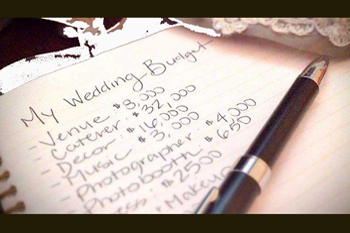 My Wedding Budget
- Venue $8,000
- Caterer: $32,000
- Decor: $16,000
- Music: $3,000
- Photographer: $4,000
- Photobooth: $650
ess: $2500
Makeup